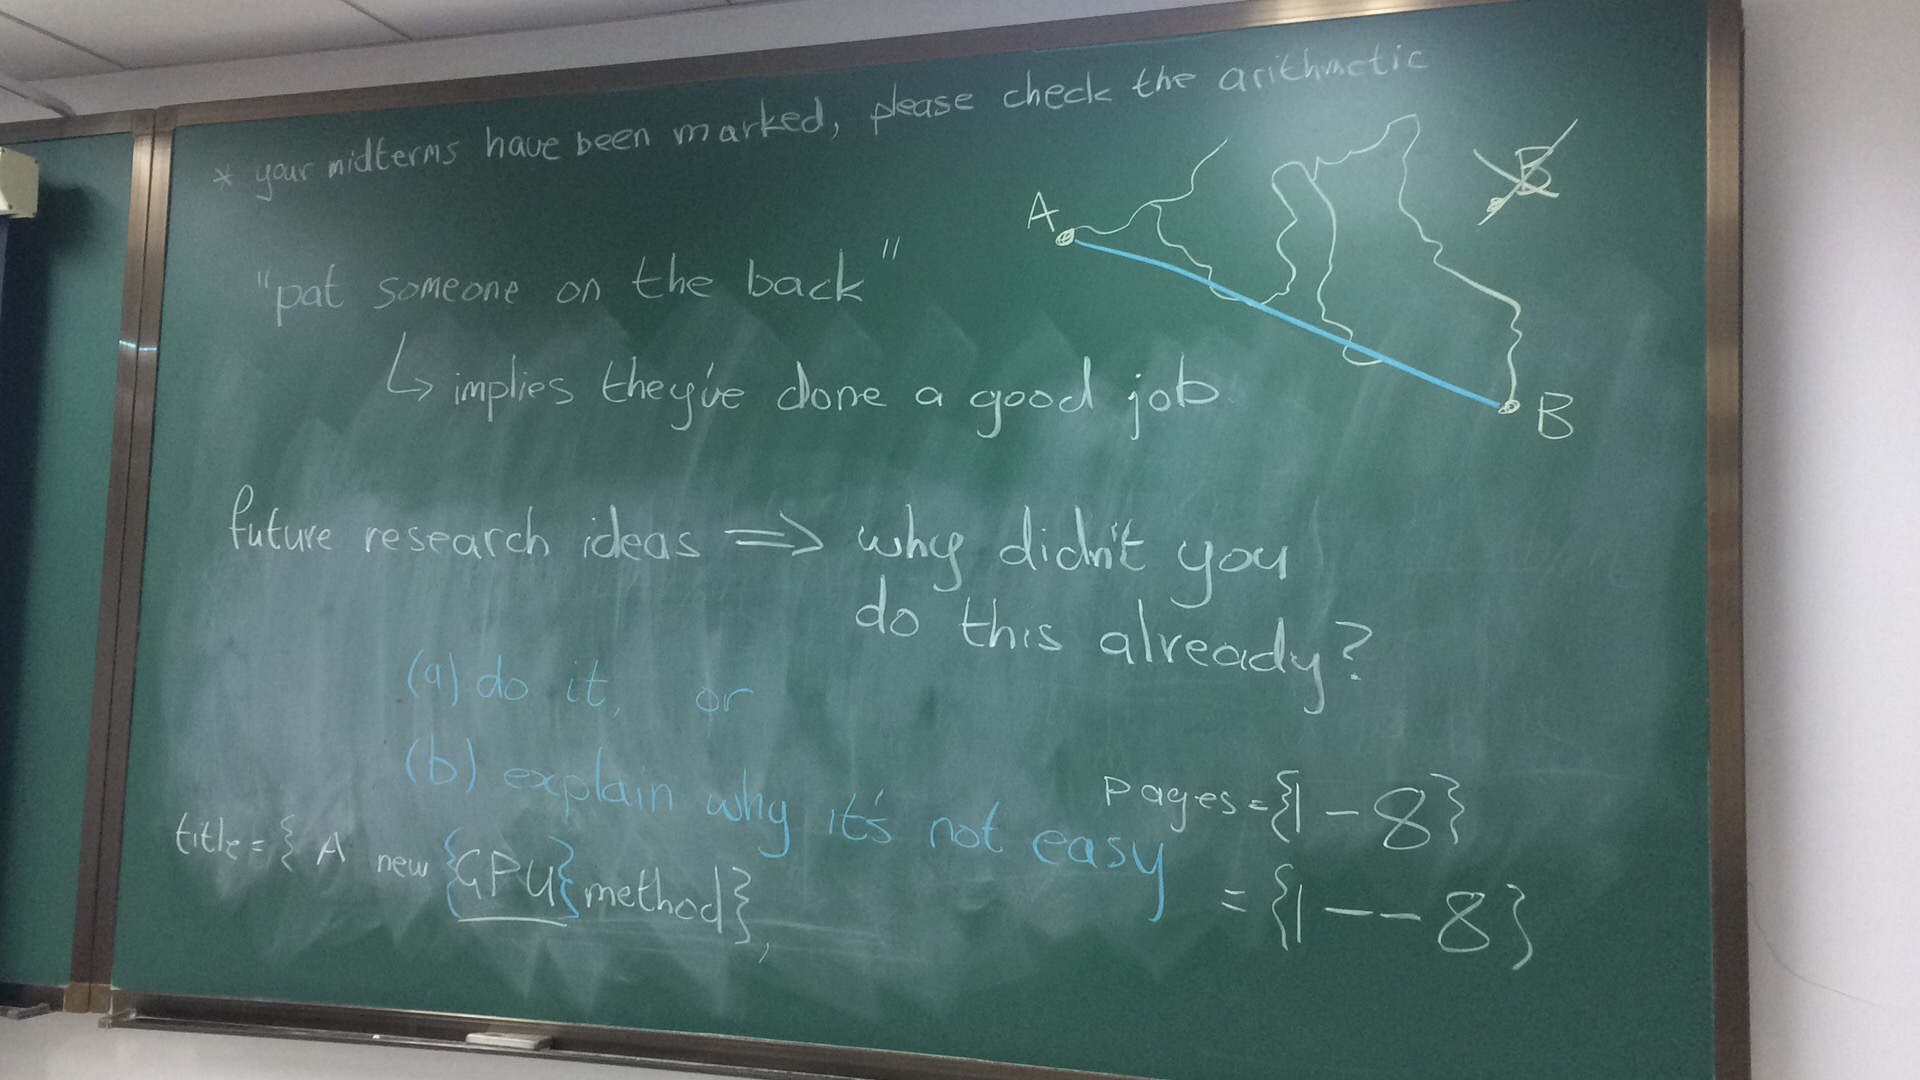 * your midterms have been marked, please check the arithmetic
A
B
"pat someone on the back"
↳ implies they've done a good job
B
future research ideas ⇒ why didn't you
do this already?
(a) do it, or
(b) explain why it's not easy
pages={1-8}
={1--8}
title={A new {GPU} method},